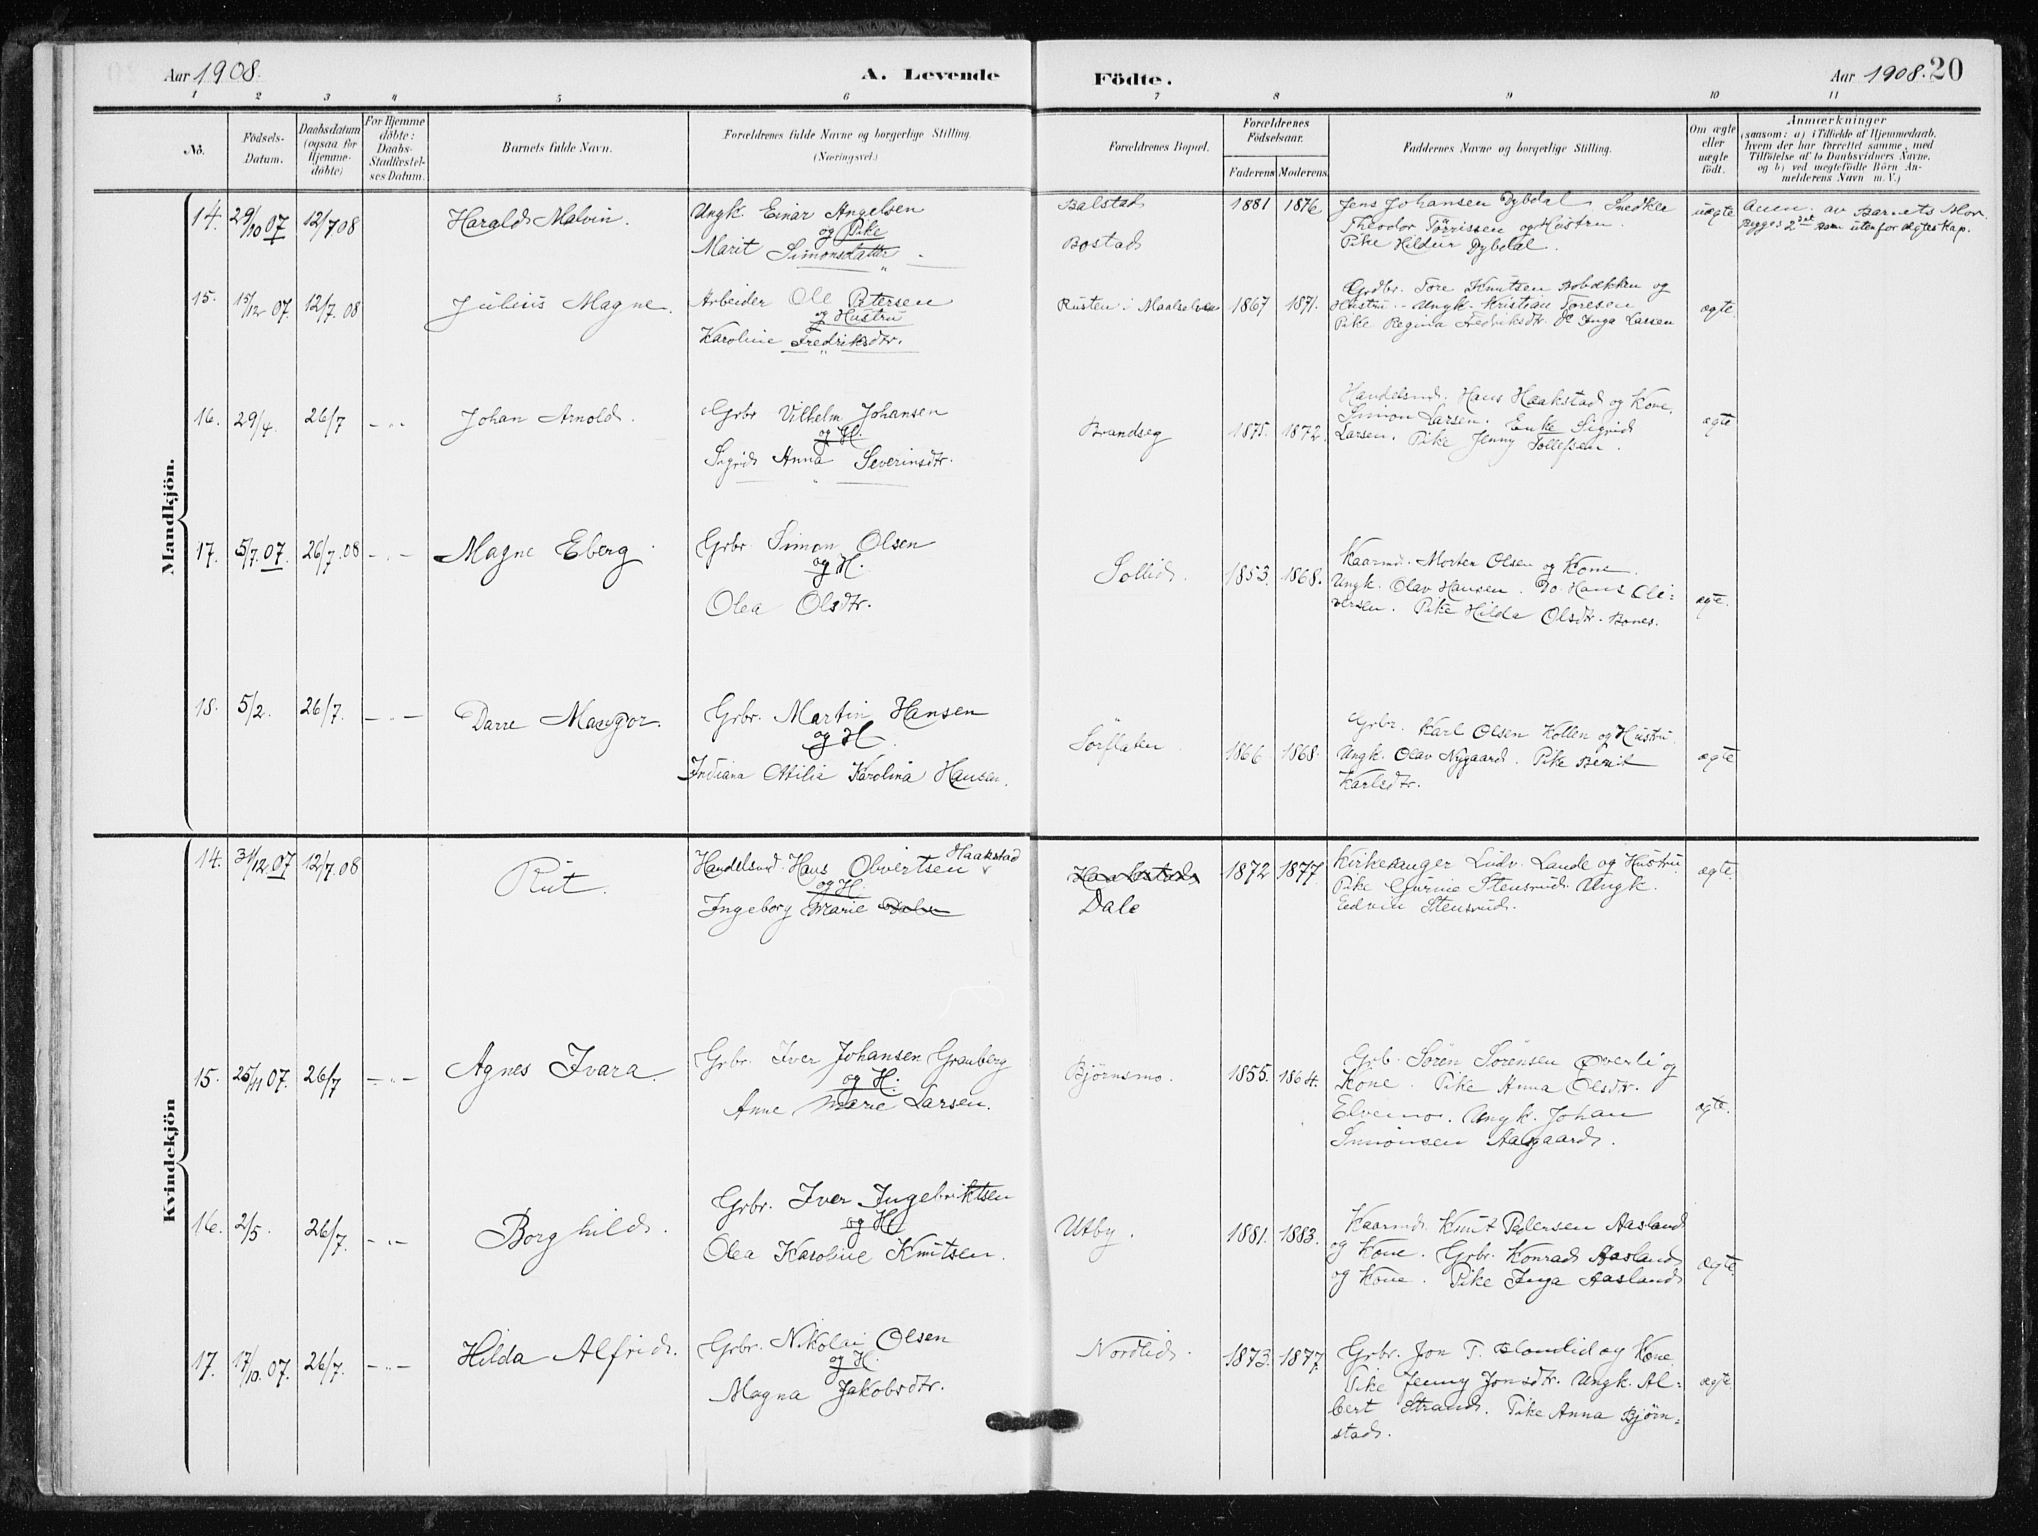 Aar 1908. A. Levende Födte. Aar 1908. 20
1 2 3 4 5 6 7 8 9 10 11
No. Födsels-Datum. Daabsdatum (ogsaa for Hjemme-döbte) For Hjemme döbte: Daabs-Stadfæstel-ses Datum. Barnets fulde Navn. Forældrenes fulde Navne og borgerlige Stilling. (Næringsvei.) Forældrenes Bopæl. Forældrenes Födselsaar. Faderens Moderens Faddernes Navne og borgerlige Stilling. Om ægte eller uægte födt. Anmærkninger
(saasom: a) i Tilfælde af Hjemmedaab,
hvem der har forrettet samme, med
Tilföielse af to Daabsvidners Navne,
og b) ved uægtefödte Börn An-
melderens Navn m. V.)
Mandkjön.
14. 29/10 07 12/7 08 Harald Malvin. Ungk. Einar Angelsen Balstad 1881 1876 Jens Johansen Dybdal Snedker uægte Anm. av Barnets Mor.
og Pike Theodor Törrissen og Hustru. Begges 2det som utenfor ægteskap.
Marit Simonsdatter Bostad Pike Hildur Dybdal.
15. 15/12 07. 12/7. 08 Julius Magne. Arbeider Ole Petersen Rusten i Maalselven 1867 1871. Grdbr. Tore Knutsen Bobakken og ægte.
og Hustru Hustru - Ungk. Kristian Toresen
Karoline Fredriksdtr. Pike Regina Fredriksdtr. Inga Larsen
16. 29/4. 26/7 - " - Johan Arnold. Grbr Vilhelm Johansen Brandseg 1875. 1872. Handelsmd. Hans Haakstad og Kone. ægte
og H. Simon Larsen. Enke Sigrid
Sigrid Anna Severinsdtr. Larsen. Pike Jenny Tollefsen.
17. 5/7. 07. 26/7. 08 - " - Magne Eberg Grbr Simon Olsen Sollid. 1853. 1868. Kaarmd. Morten Olsen og Kone. ægte.
og H. Ungk. Olav Hansen. Do. Hans Oli=
Olea Olsdtr. versen. Pike Hilda Olsdtr. Bones.
18. 5/2. 26/7. - " - Darre Mangor. Grbr. Martin Hansen Sörflaten 1866 1868. Grbr. Karl Olsen Kollen og Hustru ægte
og H. Ungk. Olav Nygaard. Pike Berit
Indiana Otilie Karolina Hansen. Karlsdtr.
Kvindekjön
14. 31/12 07 12/7. 08 Rut. Handelsmd. Hans Olvertsen Haakstad Haakstad Dale 1872 1877 Kirkesanger Ludv. Lande og Hustru ægte.
og H. Pike Gurine Stensrud. Ungk.
Ingeborg Marie Dale Edvin Stensrud.
15. 25/11 07. 26/7 - " - Agnes Ivara. Grbr. Iver Johansen Granberg Björnsmo. 1855. 1864. Grb. Sören Sörensen Överli og ægte.
og H. Kone. Pike Anna Olsdtr.
Anne Marie Larsen. Elvemo. Ungk. Johan
Simonsen Aasgaard.
16. 2/5. 26/7. - " - Borghild. Grbr. Iver Ingebriktsen Utby. 1881. 1883. Kaarmd. Knut Pedersen Aasland ægte.
og H. og Kone. Grbr. Konrad Aasland
Olea Karoline Knutsen. og Kone. Pike Inga Aasland
17. 17/10. 07. 26/7. - " - Hilda Alfrid. Grbr. Nikolai Olsen Nordlid. 1873. 1877. Grbr. Jon T. og Kone ægte
og H. Pike Jenny Jonsdtr. Ungk. Al=
Magna Jakobsdtr. bert Strand. Pike Anna Björn=
stad.